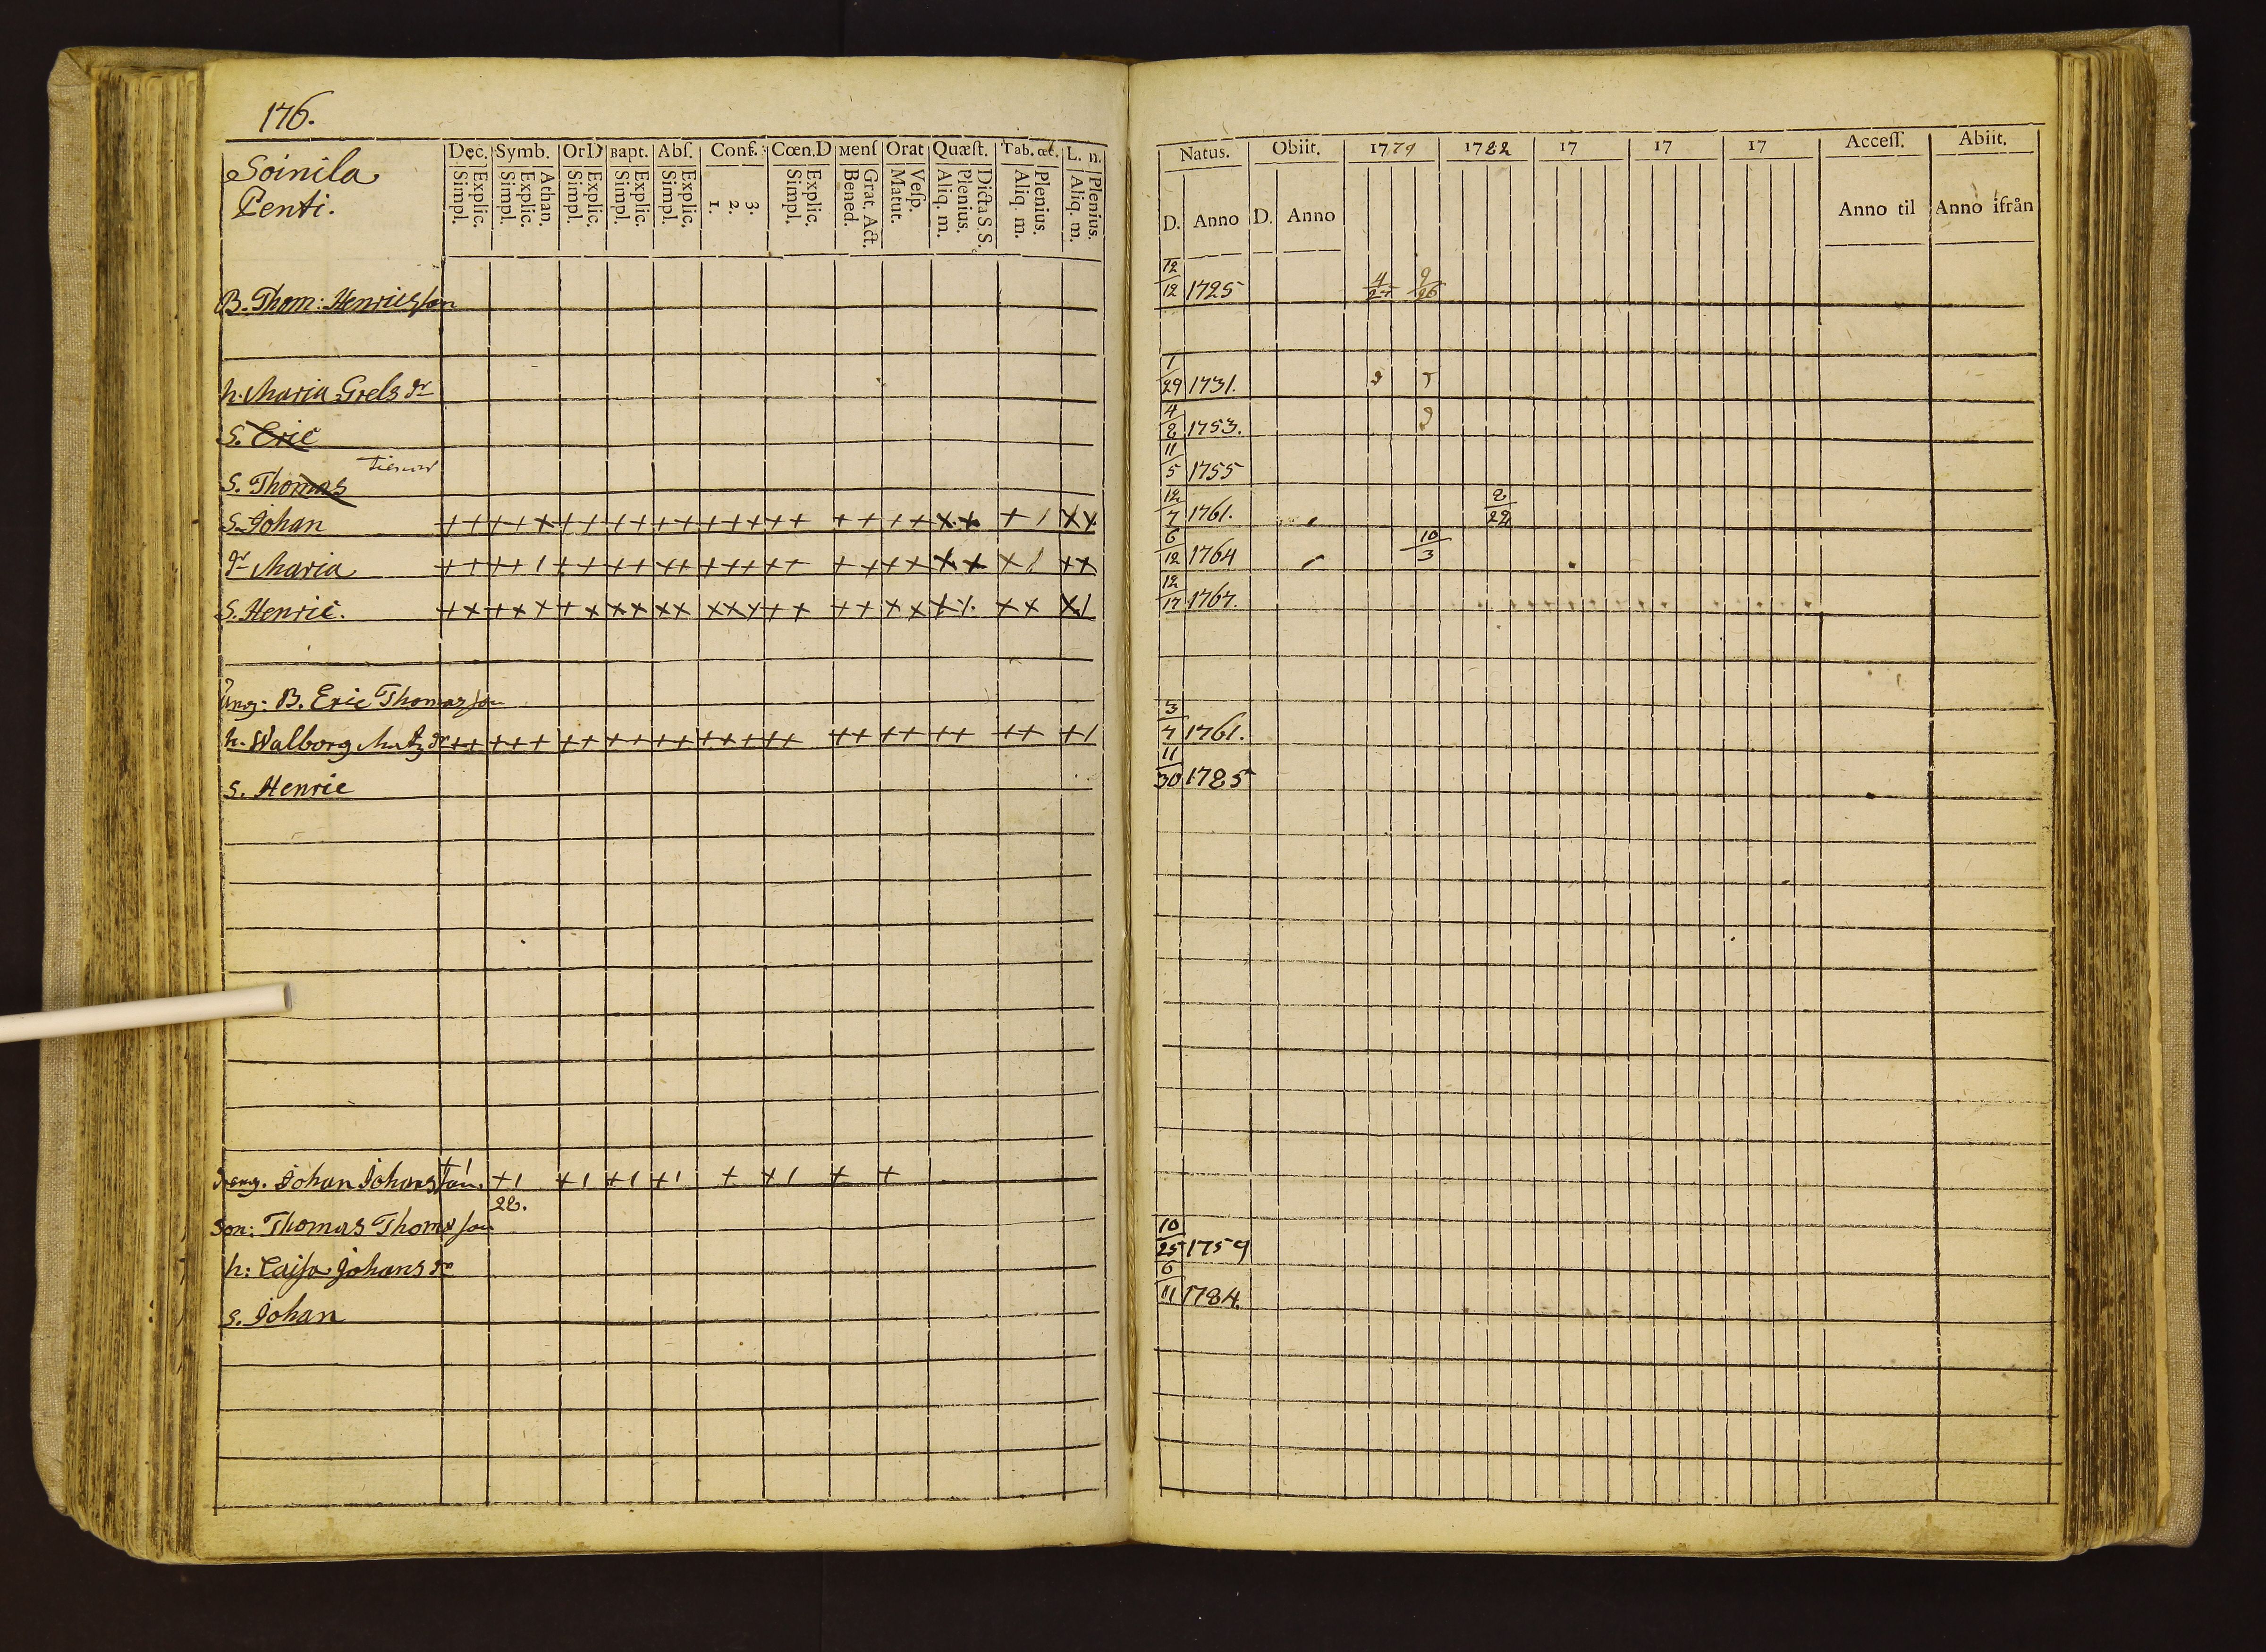 176.
Soinila
Penti.
Dec. Symb. OrD Bapt. Abſ. Conf. Cœn.D Menſ Orat Quæſt. Tab. œc. L. n.
Explic. Simpl. Athan. Explic. Simpl. Explic. Simpl. Explic. Simpl. Explic. Simpl. 3. 2. 1. Explic. Simpl. Grat. Act. Bened. Veſp. Matut. Dicta S.S. Plenius. Aliq. m. Plenius. Aliq. m. Plenius. Aliq. m.
Natus. Obiit. 1779 1782 17 17 17 Acceſſ. Abiit.
D. Anno D. Anno Anno til Anno ifrån
B. Thom: Henricsson 12/12 1725
h. Maria Grels dr 1/29 1731.
S. Eric 4/8 1753.
S. Thomas 11/5 1755
S. Johan + + + + + + + + + + + + + + + + + + + + + + + + + / + + 12/7 1761.
dr Maria + + + + / + + + + + + + + + + + + + + + + + + / + + 6/12 1764 10/3
S. Henric. + + + + + + + + + + + + + + + + + + + + + + + + + / 12/17 1767.
Ung: B. Eric Thomasson
h. Walborg Matz dr + + + + + + + + + + + + + + + + + + + + + + + + + / 3/7 1761.
S. Henric 11/30 1785
Johan Johansson + / + / + / + / + / + + / + +
28.
Son: Thomas Thomasson
h: Caisa Johans dr 10/25 1759
s. Johan 6/11 1784.